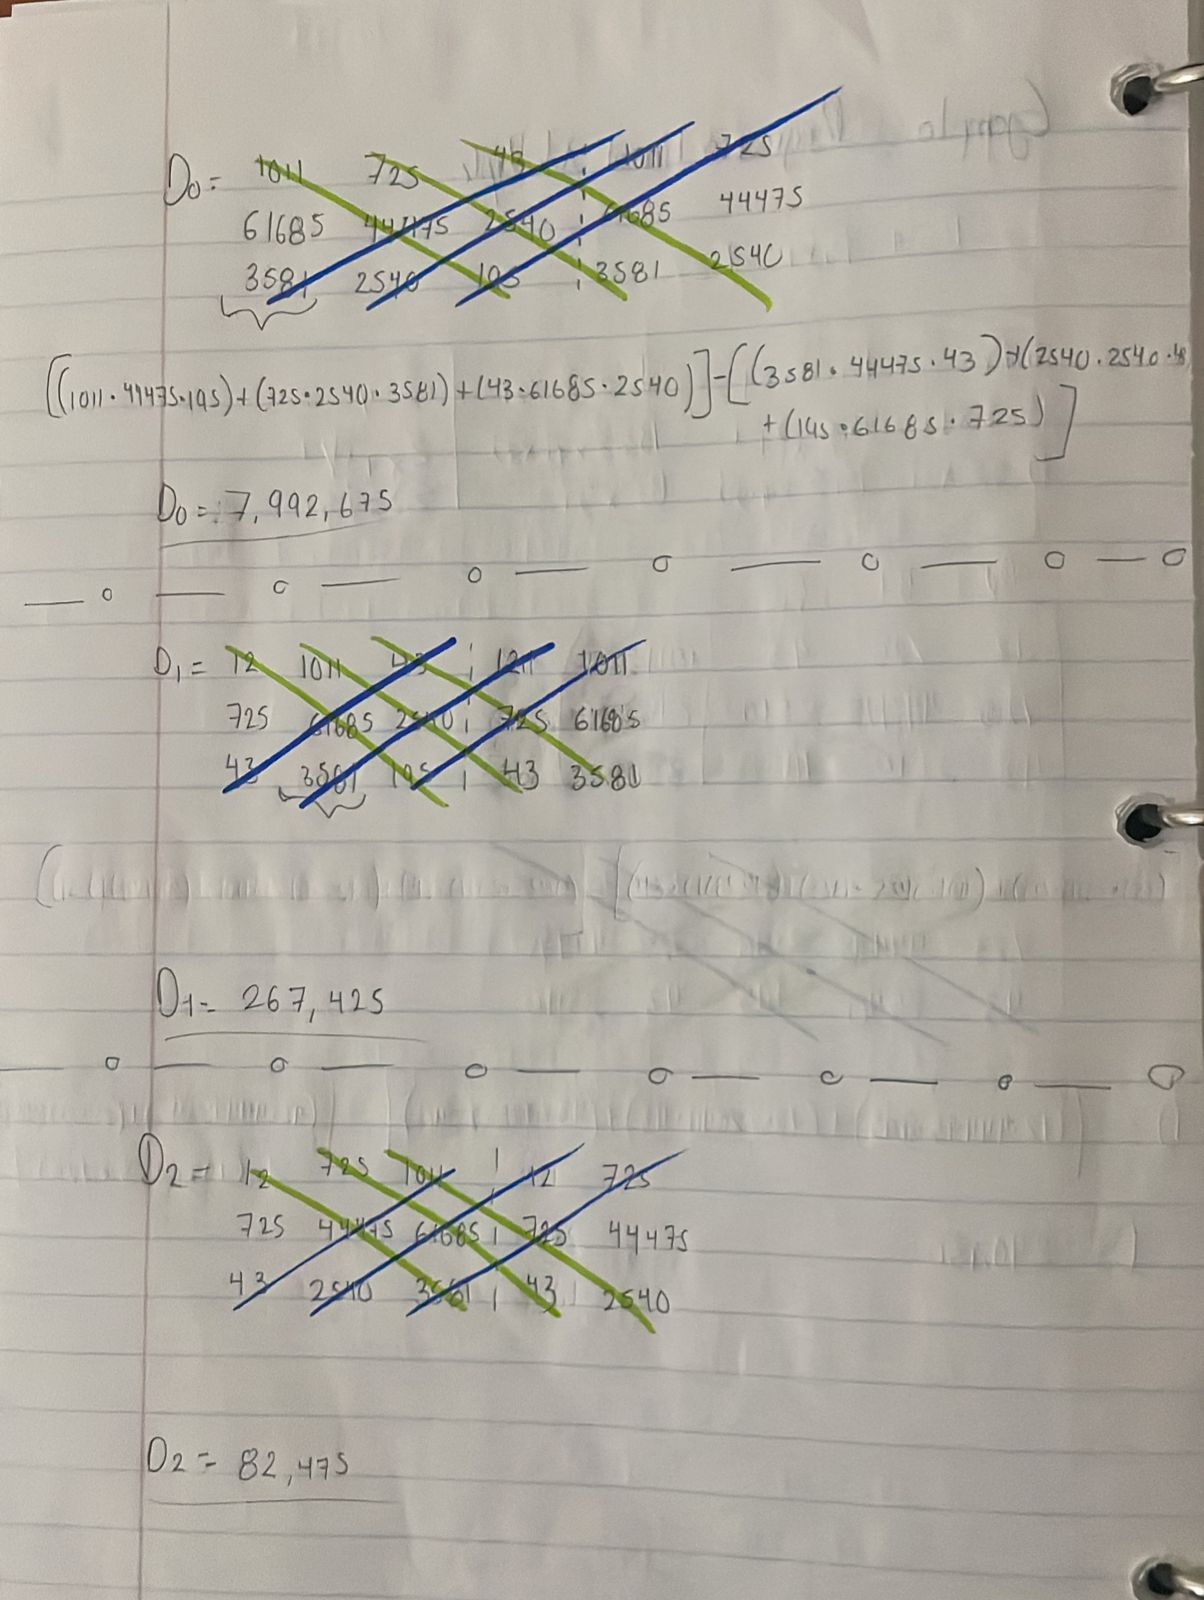 D0 = 1011 725 43 ¦ 1011 725
61685 44475 2540 ¦ 61685 44475
3581 2540 195 ¦ 3581 2540
[(1011 · 44475 · 195) + (725 · 2540 · 3581) + (43 · 61685 · 2540)] - [(3581 · 44475 · 43) + (2540 · 2540 ·
+ (195 · 61685 · 725)]
D0 = 7,992,675
D1 = 12 1011 43 ¦ 1011
725 61685 2540 ¦ 725 61685
43 3581 195 ¦ 43 3581
D1 = 267,425
D2 = 12 725 1011 ¦ 12 725
725 44475 61685 ¦ 725 44475
43 2540 3581 ¦ 43 2540
D2 = 82,475